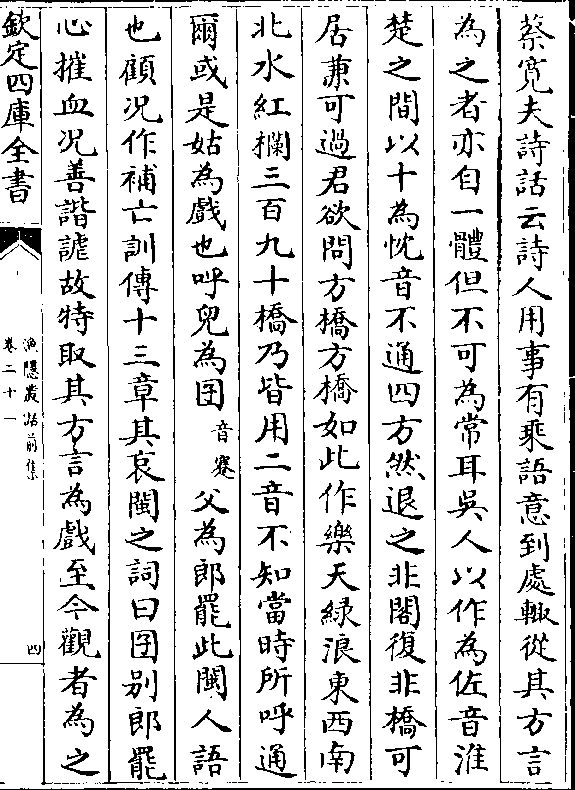 蔡寛夫詩話云詩人用事有乘語意到處輙從其方言
為之者亦自一體但不可為常耳吳人以作為佐音淮
楚之間以十為忱音不通四方然退之非閣復非橋可
居兼可過君欲問方橋方橋如此作樂天緑浪東西南
北水紅欄三百九十橋乃皆用二音不知當時所呼通
爾或是姑為戲也呼兒為囝音蹇父為郎罷此閩人語
也顧况作補亡訓傳十三章其哀閩之詞曰囝别郎罷
心摧血况善諧謔故特取其方言為戲至今觀者為之
欽定四庫全書
漁隱叢話前集
卷二十一
四